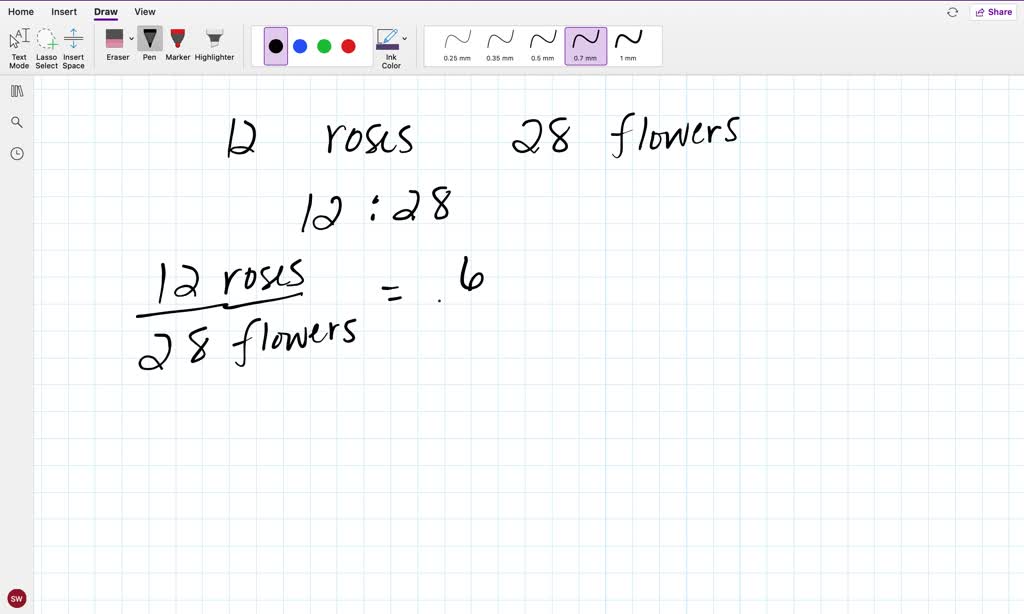 Home Insert Draw View Share
Text Mode Lasso Select Insert Space Eraser Pen Marker Highlighter Ink Color 0.25 mm 0.35 mm 0.5 mm 0.7 mm 1 mm
12 roses 28 flowers
12 : 28
12 roses = 6
28 flowers
SW